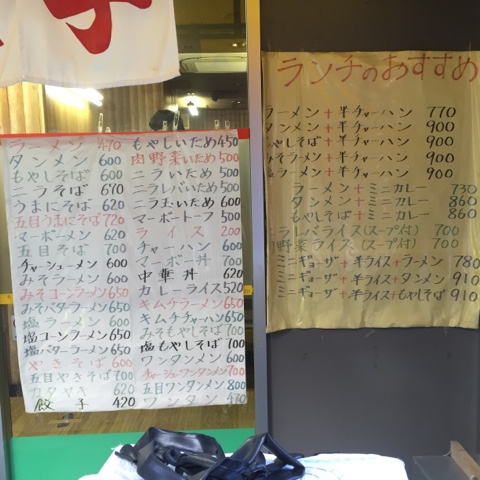 ラーメン 470
タンメン 600
もやしそば 600
ニラそば 670
うまにそば 620
五目うまにそば 720
マーボーメン 620
五目そば 700
チャーシューメン 600
みそラーメン 600
みそコーンラーメン 650
みそバターラーメン 650
塩ラーメン 600
塩コーンラーメン 650
塩バターラーメン 650
やきそば 600
五目やきそば 700
カタヤキ 620
餃子 420
もやしいため 450
肉野菜いため 500
ニライため 500
ニラレバいため 500
ニラ玉いため 600
マーボートーフ 500
ライス 200
チャーハン 600
マーボー丼 700
中華丼 620
カレーライス 520
キムチラーメン 650
キムチチャーハン 650
みそもやしそば 700
塩もやしそば 700
ワンタンメン 600
チャーシューワンタンメン 700
五目ワンタンメン 800
ワンタン 470
ランチのおすすめ
ラーメン+半チャーハン 770
タンメン+半チャーハン 900
もやしそば+半チャーハン 900
みそラーメン+半チャーハン 900
ラーメン+半チャーハン 900
ラーメン+ミニカレー 730
タンメン+ミニカレー 860
もやしそば+ミニカレー 860
ニラレバライス(スープ付) 700
野菜ライス(スープ付) 700
ミニギョーザ+半ライス+ラーメン 780
ミニギョーザ+半ライス+タンメン 910
ミニギョーザ+半ライス+もやしそば 910